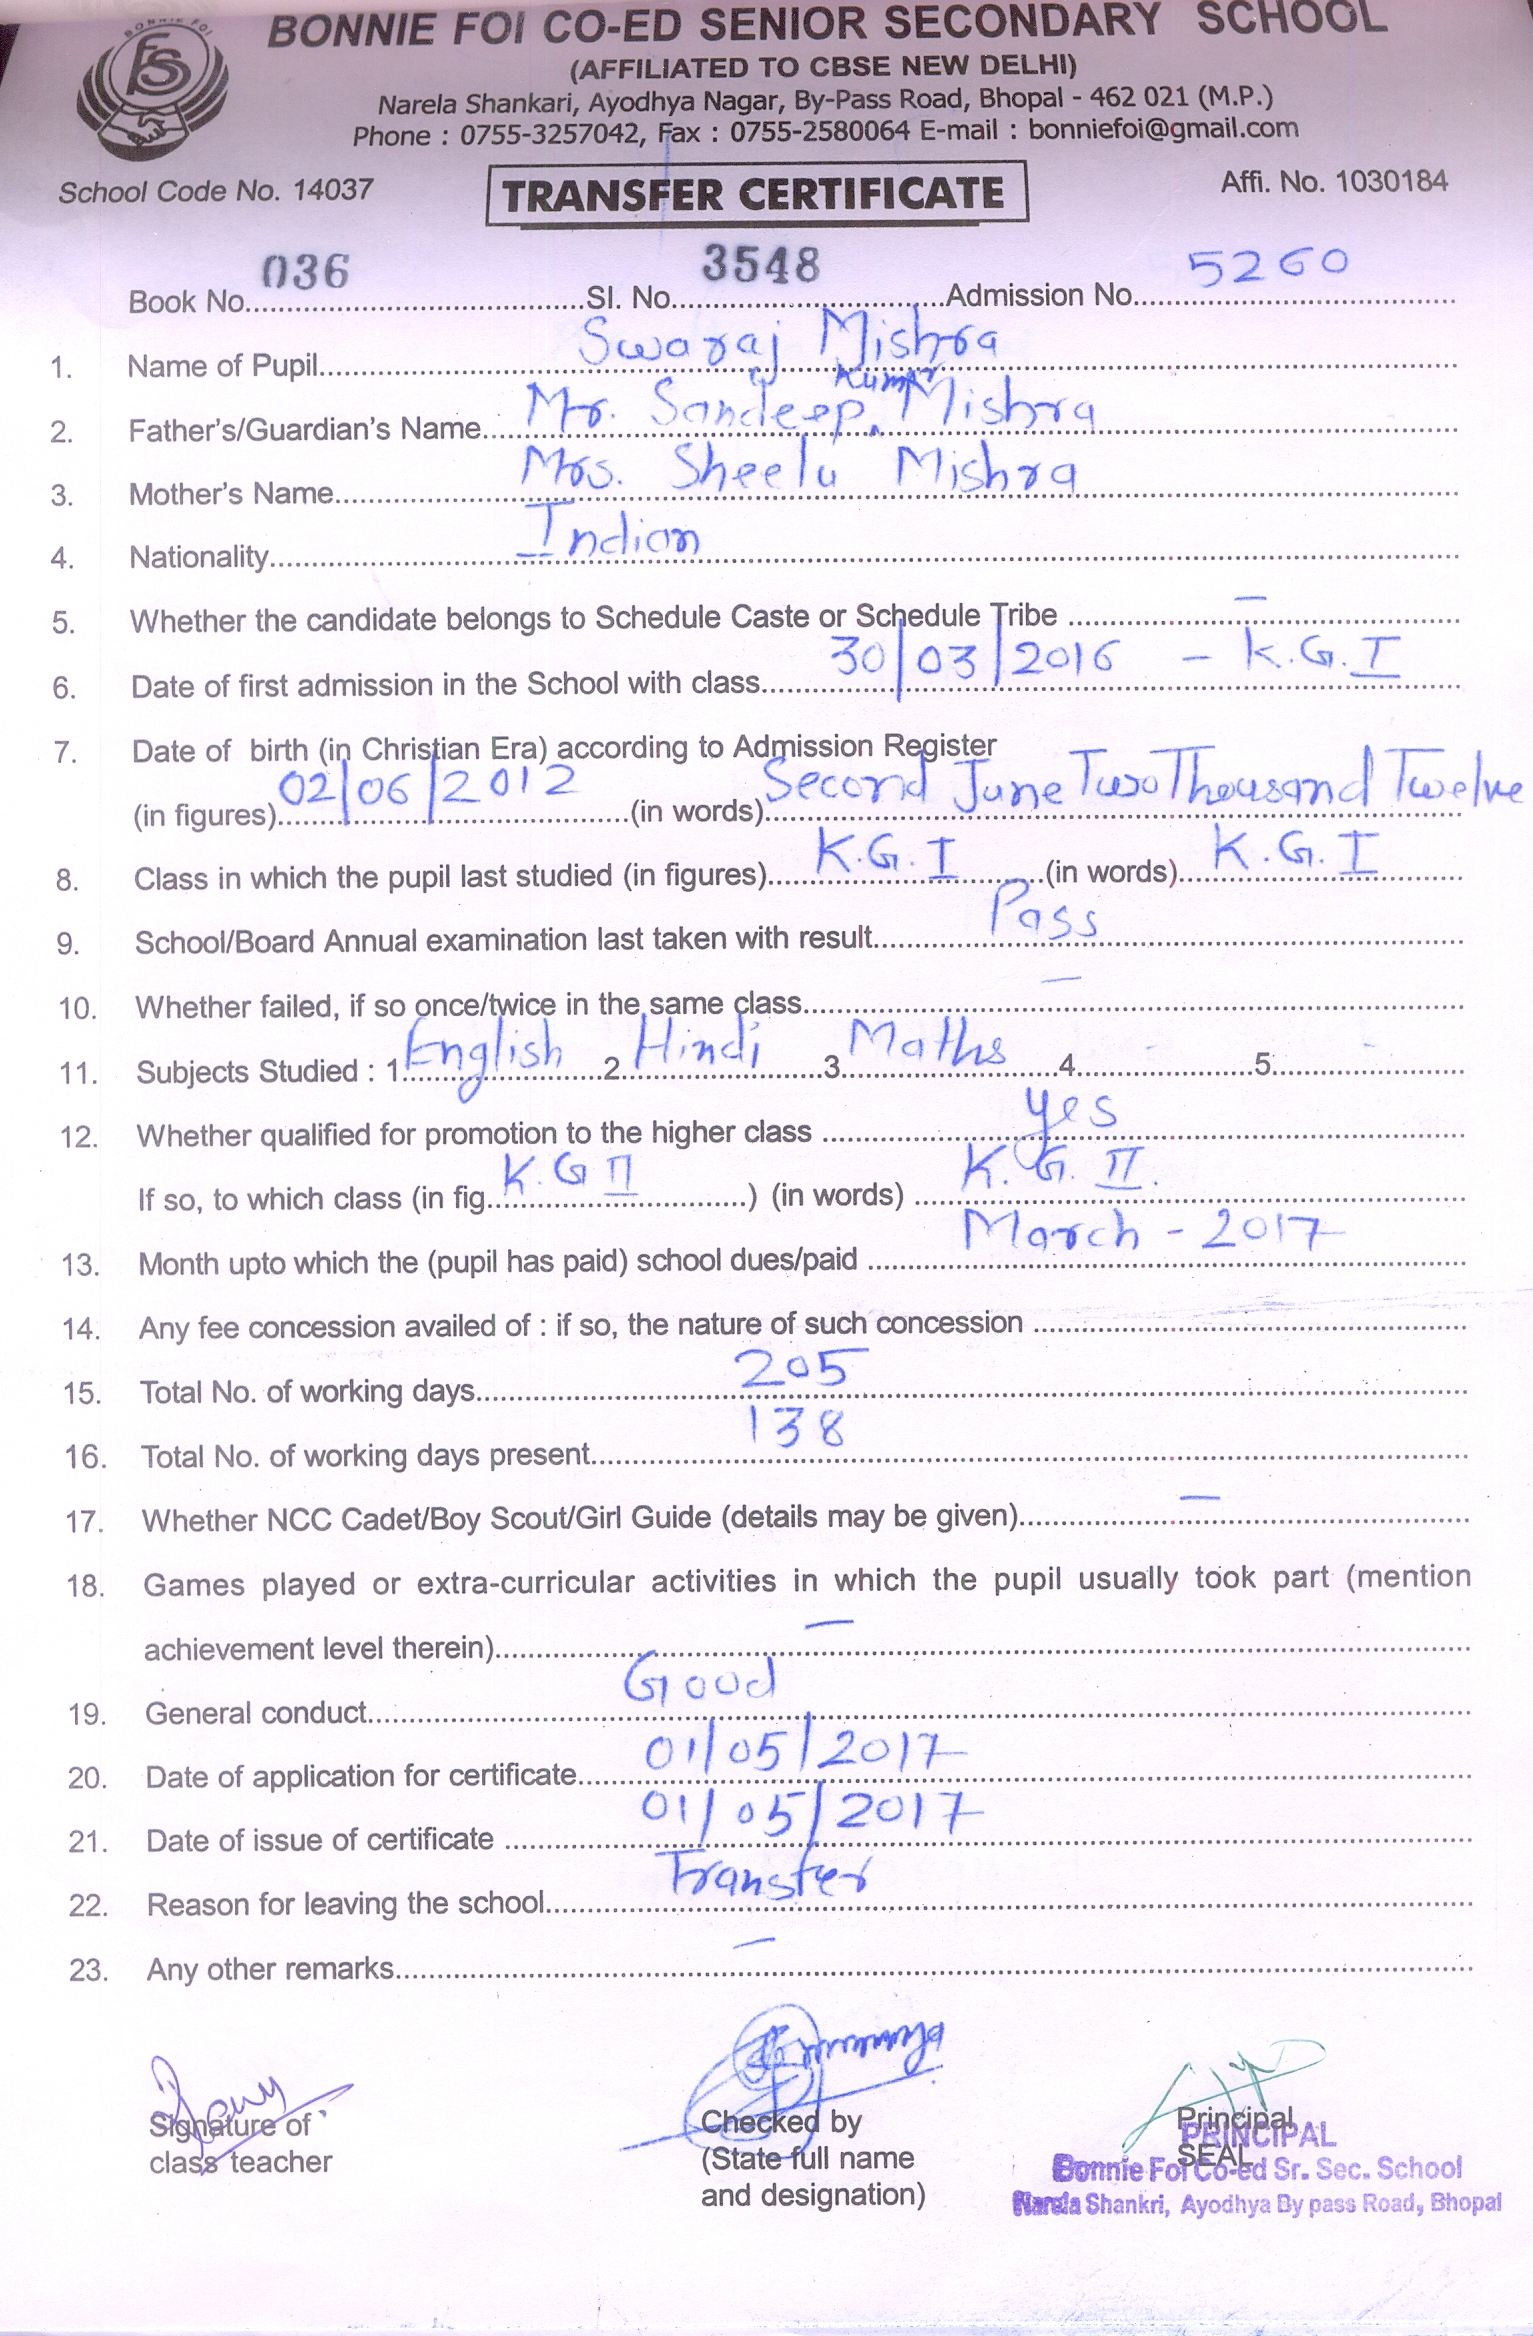 BONNIE FOI
FS
BONNIE FOI CO-ED SENIOR SECONDARY SCHOOL
(AFFILIATED TO CBSE NEW DELHI)
Narela Shankari, Ayodhya Nagar, By-Pass Road, Bhopal - 462 021 (M.P.)
Phone : 0755-3257042, Fax : 0755-2580064 E-mail : bonniefoi@gmail.com
School Code No. 14037 TRANSFER CERTIFICATE Affi. No. 1030184
Book No. 036 Sl. No. 3548 Admission No. 5260
1. Name of Pupil Swaraj Mishra
2. Father's/Guardian's Name Mr. Sandeep Kumar Mishra
3. Mother's Name Mrs. Sheelu Mishra
4. Nationality Indian
5. Whether the candidate belongs to Schedule Caste or Schedule Tribe —
6. Date of first admission in the School with class 30/03/2016 - K.G.I
7. Date of birth (in Christian Era) according to Admission Register
(in figures) 02/06/2012 (in words) Second June Two Thousand Twelve
8. Class in which the pupil last studied (in figures) K.G.I (in words) K.G.I
9. School/Board Annual examination last taken with result Pass
10. Whether failed, if so once/twice in the same class —
11. Subjects Studied : 1 English 2 Hindi 3 Maths 4 - 5 -
12. Whether qualified for promotion to the higher class yes
If so, to which class (in fig. K.G II) (in words) K.G. II.
13. Month upto which the (pupil has paid) school dues/paid March - 2017
14. Any fee concession availed of : if so, the nature of such concession
15. Total No. of working days 205
16. Total No. of working days present 138
17. Whether NCC Cadet/Boy Scout/Girl Guide (details may be given) —
18. Games played or extra-curricular activities in which the pupil usually took part (mention
achievement level therein) —
19. General conduct Good
20. Date of application for certificate 01/05/2017
21. Date of issue of certificate 01/05/2017
22. Reason for leaving the school Transfer
23. Any other remarks —
Signature of Checked by Principal
class teacher (State full name SEAL
and designation)
PRINCIPAL
Bonnie Foi Co-ed Sr. Sec. School
Narela Shankri, Ayodhya By pass Road, Bhopal